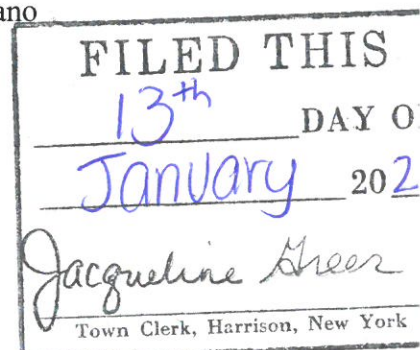 ano
FILED THIS
13th DAY O
January 202
Jacqueline Greer
Town Clerk, Harrison, New York